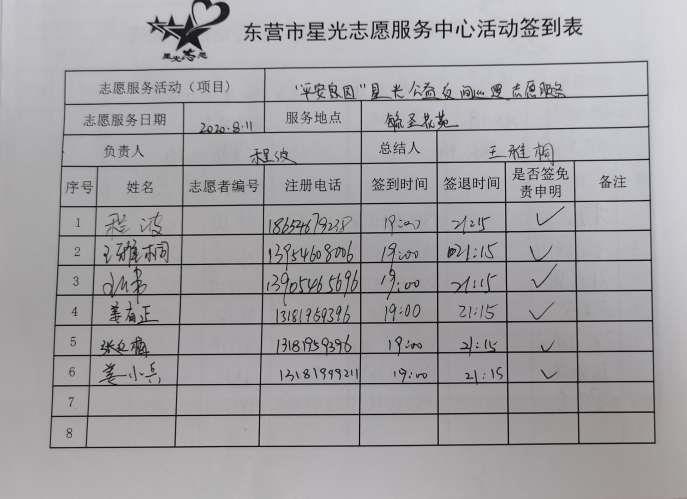 星光志愿
东营市星光志愿服务中心活动签到表
志愿服务活动（项目） "平安良园"星光公益夜间巡逻志愿服务
志愿服务日期 2020.8.11 服务地点
负责人 程波 总结人 王雅桐
序号 姓名 志愿者编号 注册电话 签到时间 签退时间 是否签免责申明 备注
1 程波 18654679238 19:00 21:15 ✓
2 王雅桐 13954608006 19:00 21:15 ✓
3 13905465696 19:00 21:15 ✓
4 姜有正 13181959396 19:00 21:15 ✓
5 张红梅 13181959396 19:00 21:15 ✓
6 姜小兵 13181999211 19:00 21:15 ✓
7
8